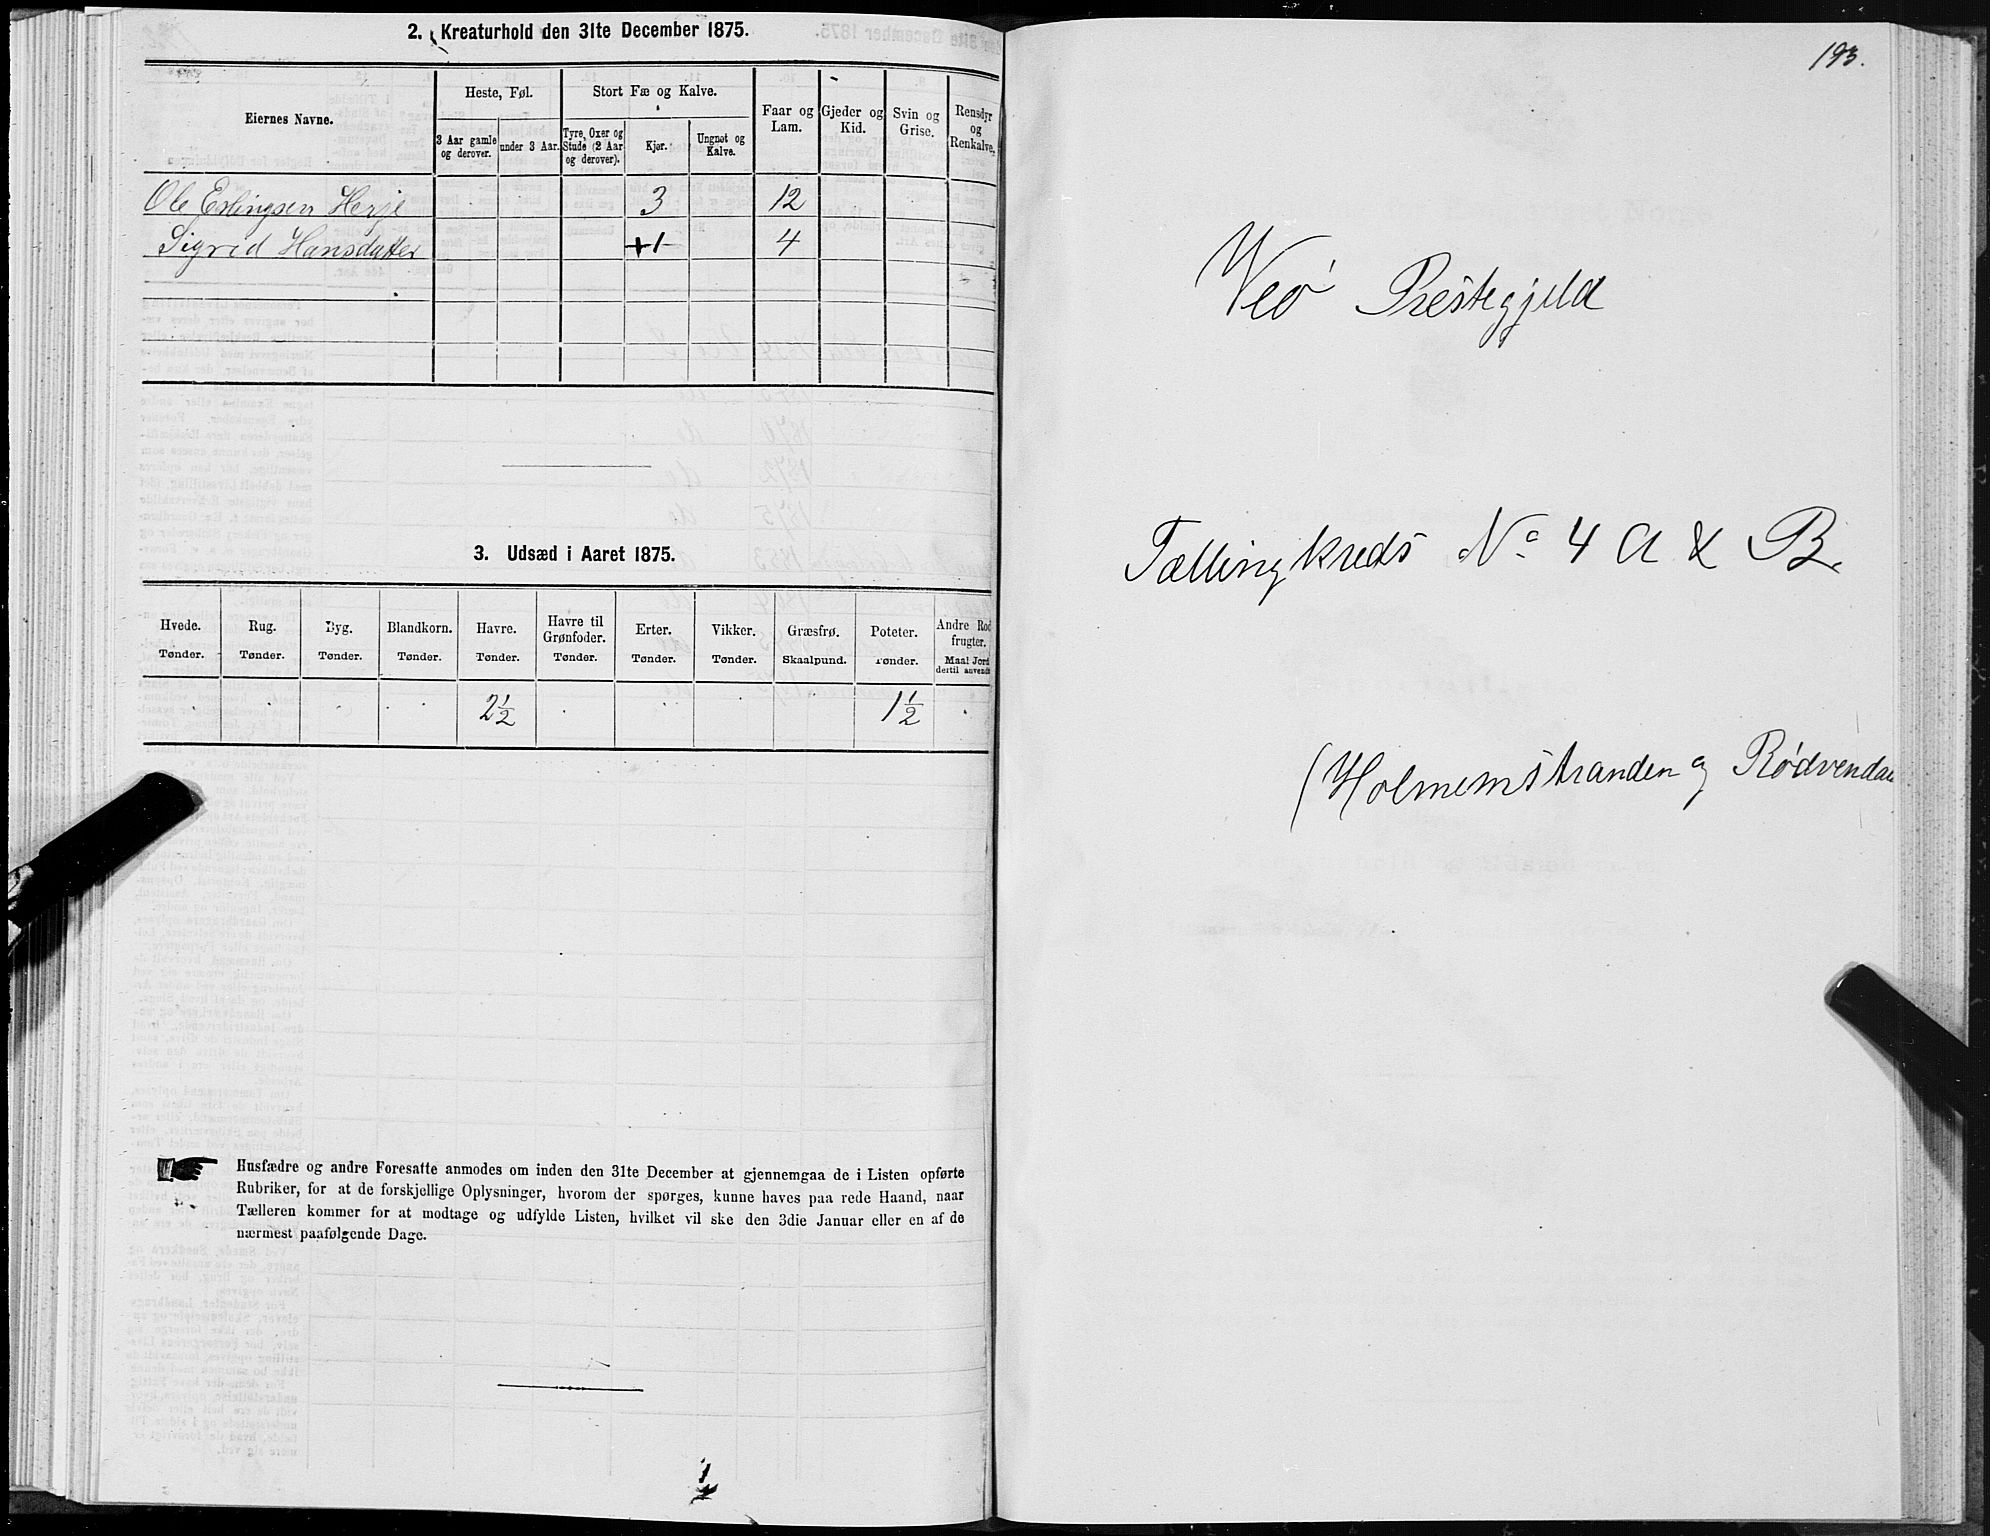 2. Kreaturhold den 31te December 1875.
Eiernes Navne.
Heste, Føl.
Stort Fæ og Kalve.
Faar og Lam.
Gjeder og Kid.
Svin og Grise.
Rensdyr og Renkalve.
3 Aar gamle og derover.
under 3 Aar.
Tyre, Oxer og Stude (2 Aar og derover).
Kjør.
Ungnøt og Kalve.
Ole Erlingsen Herje 3 12
Sigrid Hansdatter +1 4
3. Udsæd i Aaret 1875.
Hvede. Rug. Byg. Blandkorn. Havre. Havre til Grønfoder. Erter. Vikker. Græsfrø. Poteter. Andre Rod frugter.
Tønder. Tønder. Tønder. Tønder. Tønder. Tønder. Tønder. Tønder. Skaalpund. Tønder. Maal Jord dertil anvendt
2½ 1½
Husfædre og andre Foresatte anmodes om inden den 31te December at gjennemgaa de i Listen opførte
Rubriker, for at de forskjellige Oplysninger, hvorom der spørges, kunne haves paa rede Haand, naar
Tælleren kommer for at modtage og udfylde Listen, hvilket vil ske den 3die Januar eller en af de
nærmest paafølgende Dage.
193.
Veø Prestegjeld
Tællingkreds No 4 A & B.
(Holmemstranden og Rødvendal